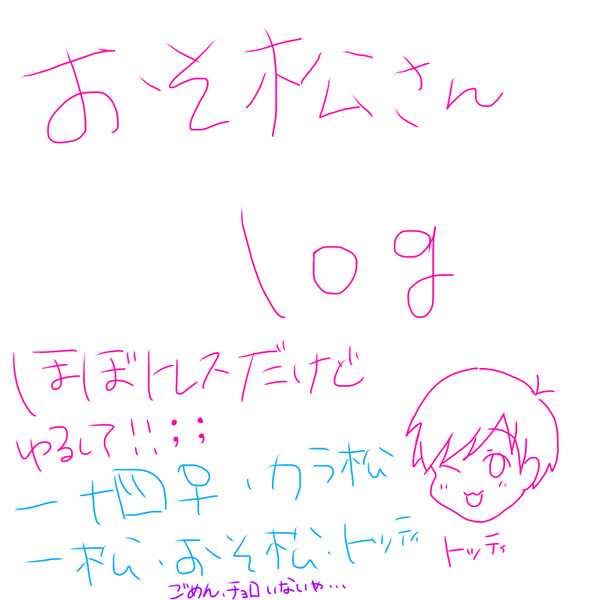 おそ松さん
log
ほぼトレスだけど
ゆるして!!;;
一十四早・カラ松
一松・おそ松・トッティ
トッティ
ごめん、チョロいないや…